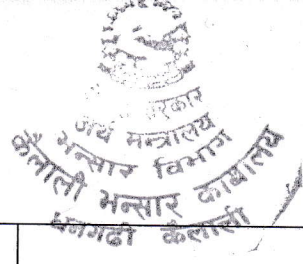 सरकार
अर्थ मन्त्रालय
भन्सार विभाग
कैलाली भन्सार कार्यालय
धनगढी कैलाली